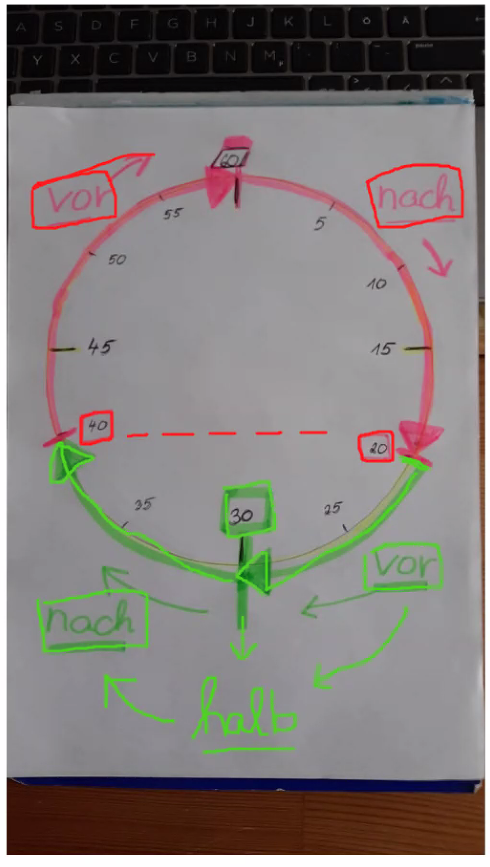 A S D F G H J K L Ö Ä
Y X C V B N M
60
vor
nach
55
5
50
10
45
15
40
20
35
30
25
vor
nach
halb